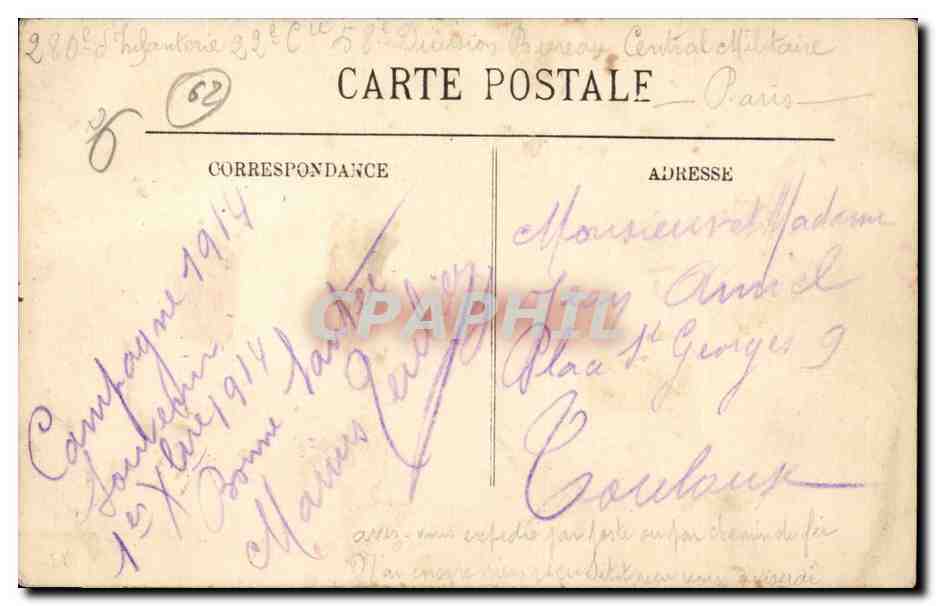 280e d'Infanterie 22e Cie 58e Division Bureau Central Militaire
CARTE POSTALE
Paris
62
CORRESPONDANCE
ADRESSE
Campagne 1914
Souvenir
1er Xbre 1914
Bonne Santé
Marius
Monsieur et Madame
Jean Amiel
Place St Georges 9
Toulouse
CPAPHIL
avez-vous expedié par poste ou par chemin de fer